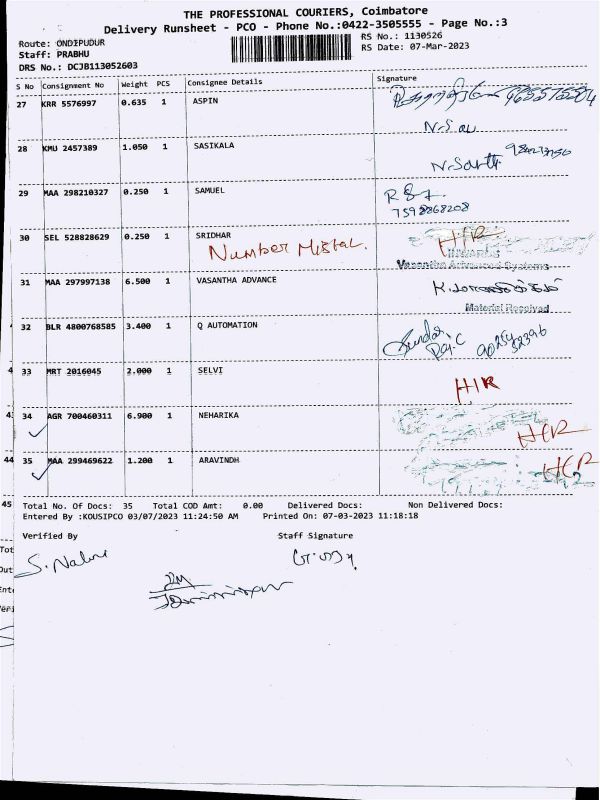 THE PROFESSIONAL COURIERS, Coimbatore
Delivery Runsheet - PCO - Phone No.:0422-3505555 - Page No.:3
Route: ONDIPUDUR
RS No.: 1130526
Staff: PRABHU
RS Date: 07-Mar-2023
DRS No.: DCJB113052603
S No Consignment No Weight PCS Consignee Details Signature
27 KRR 5576997 0.635 1 ASPIN
28 KMU 2457389 1.050 1 SASIKALA
29 MAA 298210327 0.250 1 SAMUEL
7598868208
30 SEL 528828629 0.250 1 SRIDHAR
Number Mistak. HIR
Vasantha Advanced Systems
31 MAA 297997138 6.500 1 VASANTHA ADVANCE
Material Received
32 BLR 4800768585 3.400 1 Q AUTOMATION
33 MRT 2016045 2.000 1 SELVI
HIR
34 AGR 700460311 6.900 1 NEHARIKA
HIR
44 35 MAA 299469622 1.200 1 ARAVINDH
HIR
45 Total No. Of Docs: 35 Total COD Amt: 0.00 Delivered Docs: Non Delivered Docs:
Entered By :KOUSIPCO 03/07/2023 11:24:50 AM Printed On: 07-03-2023 11:18:18
Verified By Staff Signature